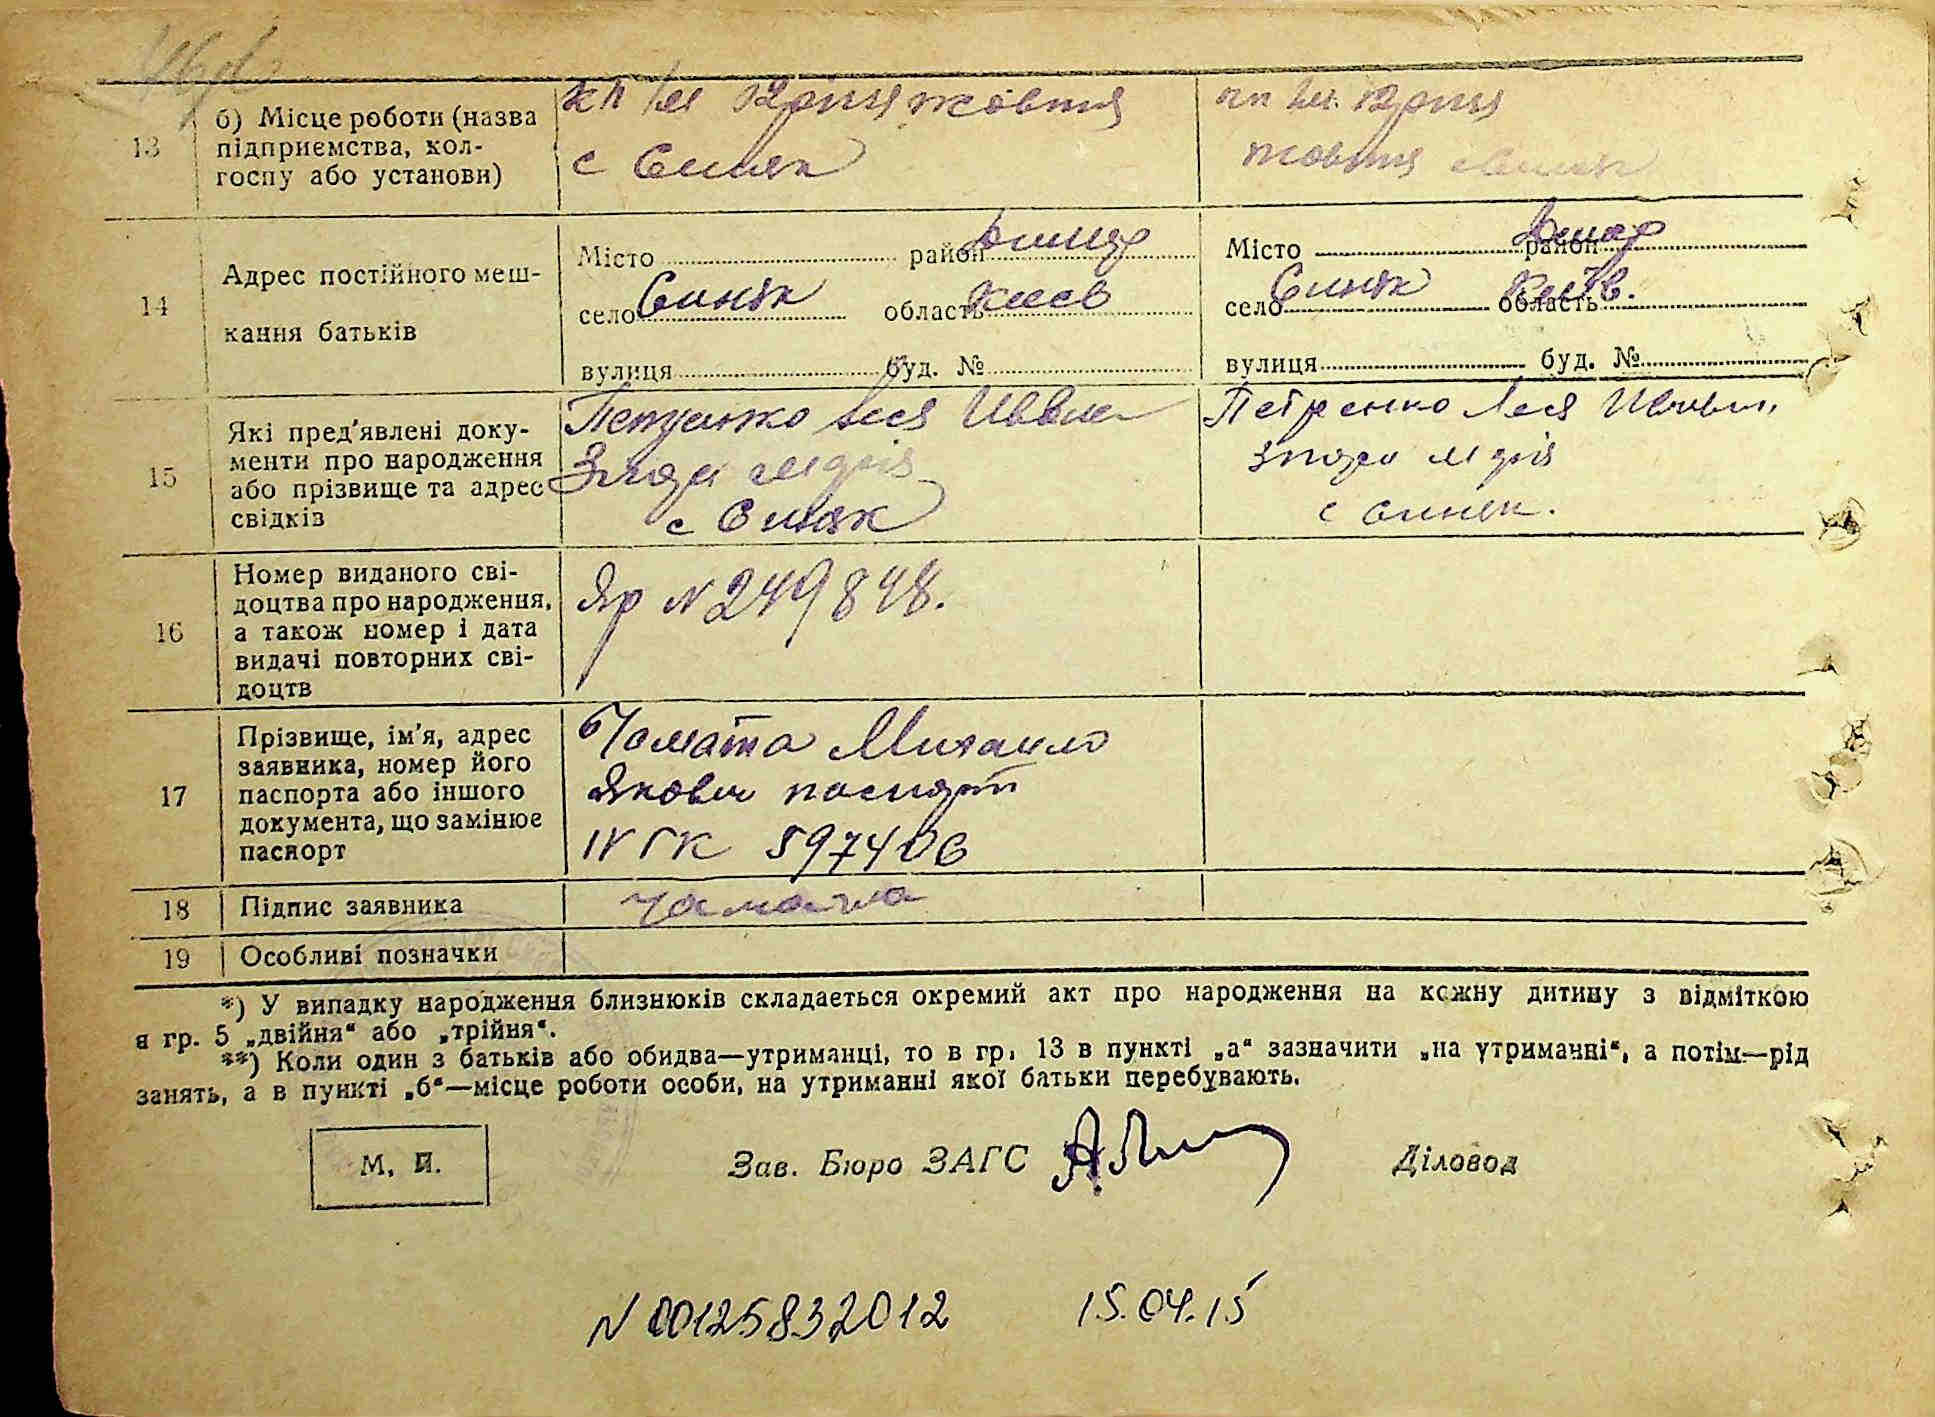 13
б) Місце роботи (назва
підприємства, кол-
госпу або установи)
кп ім 12 річчя жовтня
с Синяк
кп ім. 12 річчя
жовтня с Синяк
14
Адрес постійного меш-
кання батьків
Місто район Димер
село Синяк область Київ
вулиця буд. №
Місто район Димер
село Синяк область Київ.
вулиця буд. №
15
Які пред'явлені доку-
менти про народження
або прізвище та адрес
свідків
Петренко Леся
с Синяк
Петренко Леся
с Синяк.
16
Номер виданого сві-
доцтва про народження,
а також номер і дата
видачі повторних сві-
доцтв
Яр N 249848.
17
Прізвище, ім'я, адрес
заявника, номер його
паспорта або іншого
документа, що замінює
паспорт
Чамата Михайло
Якович паспорт
IV ГК 597406
18
Підпис заявника
Чамата
19
Особливі позначки
*) У випадку народження близнюків складається окремий акт про народження на кожну дитину з відміткою
в гр. 5 „двійня“ або „трійня“.
**) Коли один з батьків або обидва—утриманці, то в гр. 13 в пункті „а“ зазначити „на утриманні“, а потім—рід
занять, а в пункті „б“—місце роботи особи, на утриманні якої батьки перебувають.
М. П.
Зав. Бюро ЗАГС
Діловод
N 00125832012 15.04.15